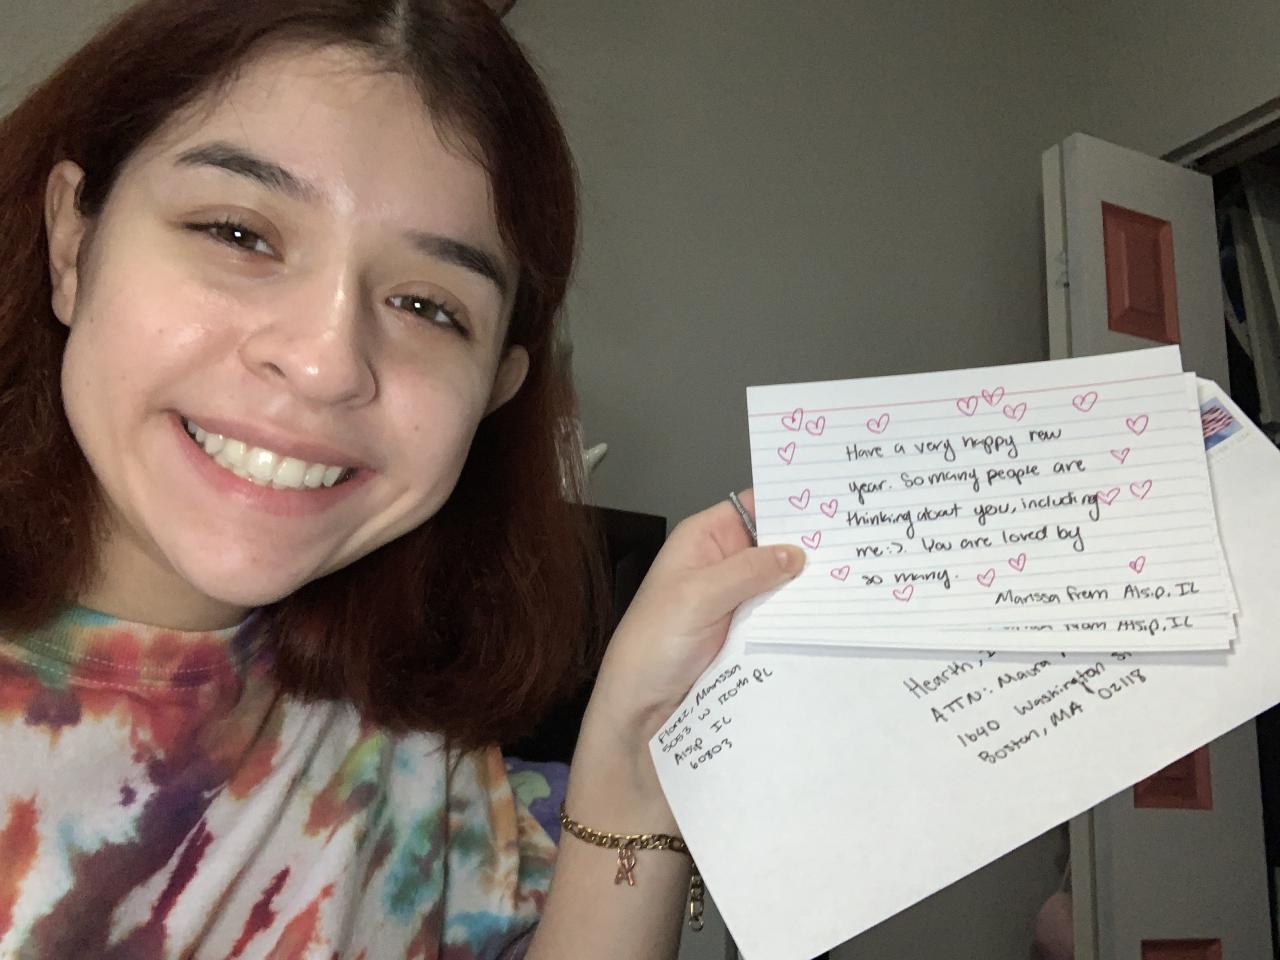 Have a very happy new
year. So many people are
thinking about you, including
me:). You are loved by
so many.
Marissa from Alsip, IL
from Alsip, IL
Florez, Marissa
5053 W 120th PL
Alsip IL
60803
Hearth,
ATTN: Maura
1640 Washington St
Boston, MA 02118